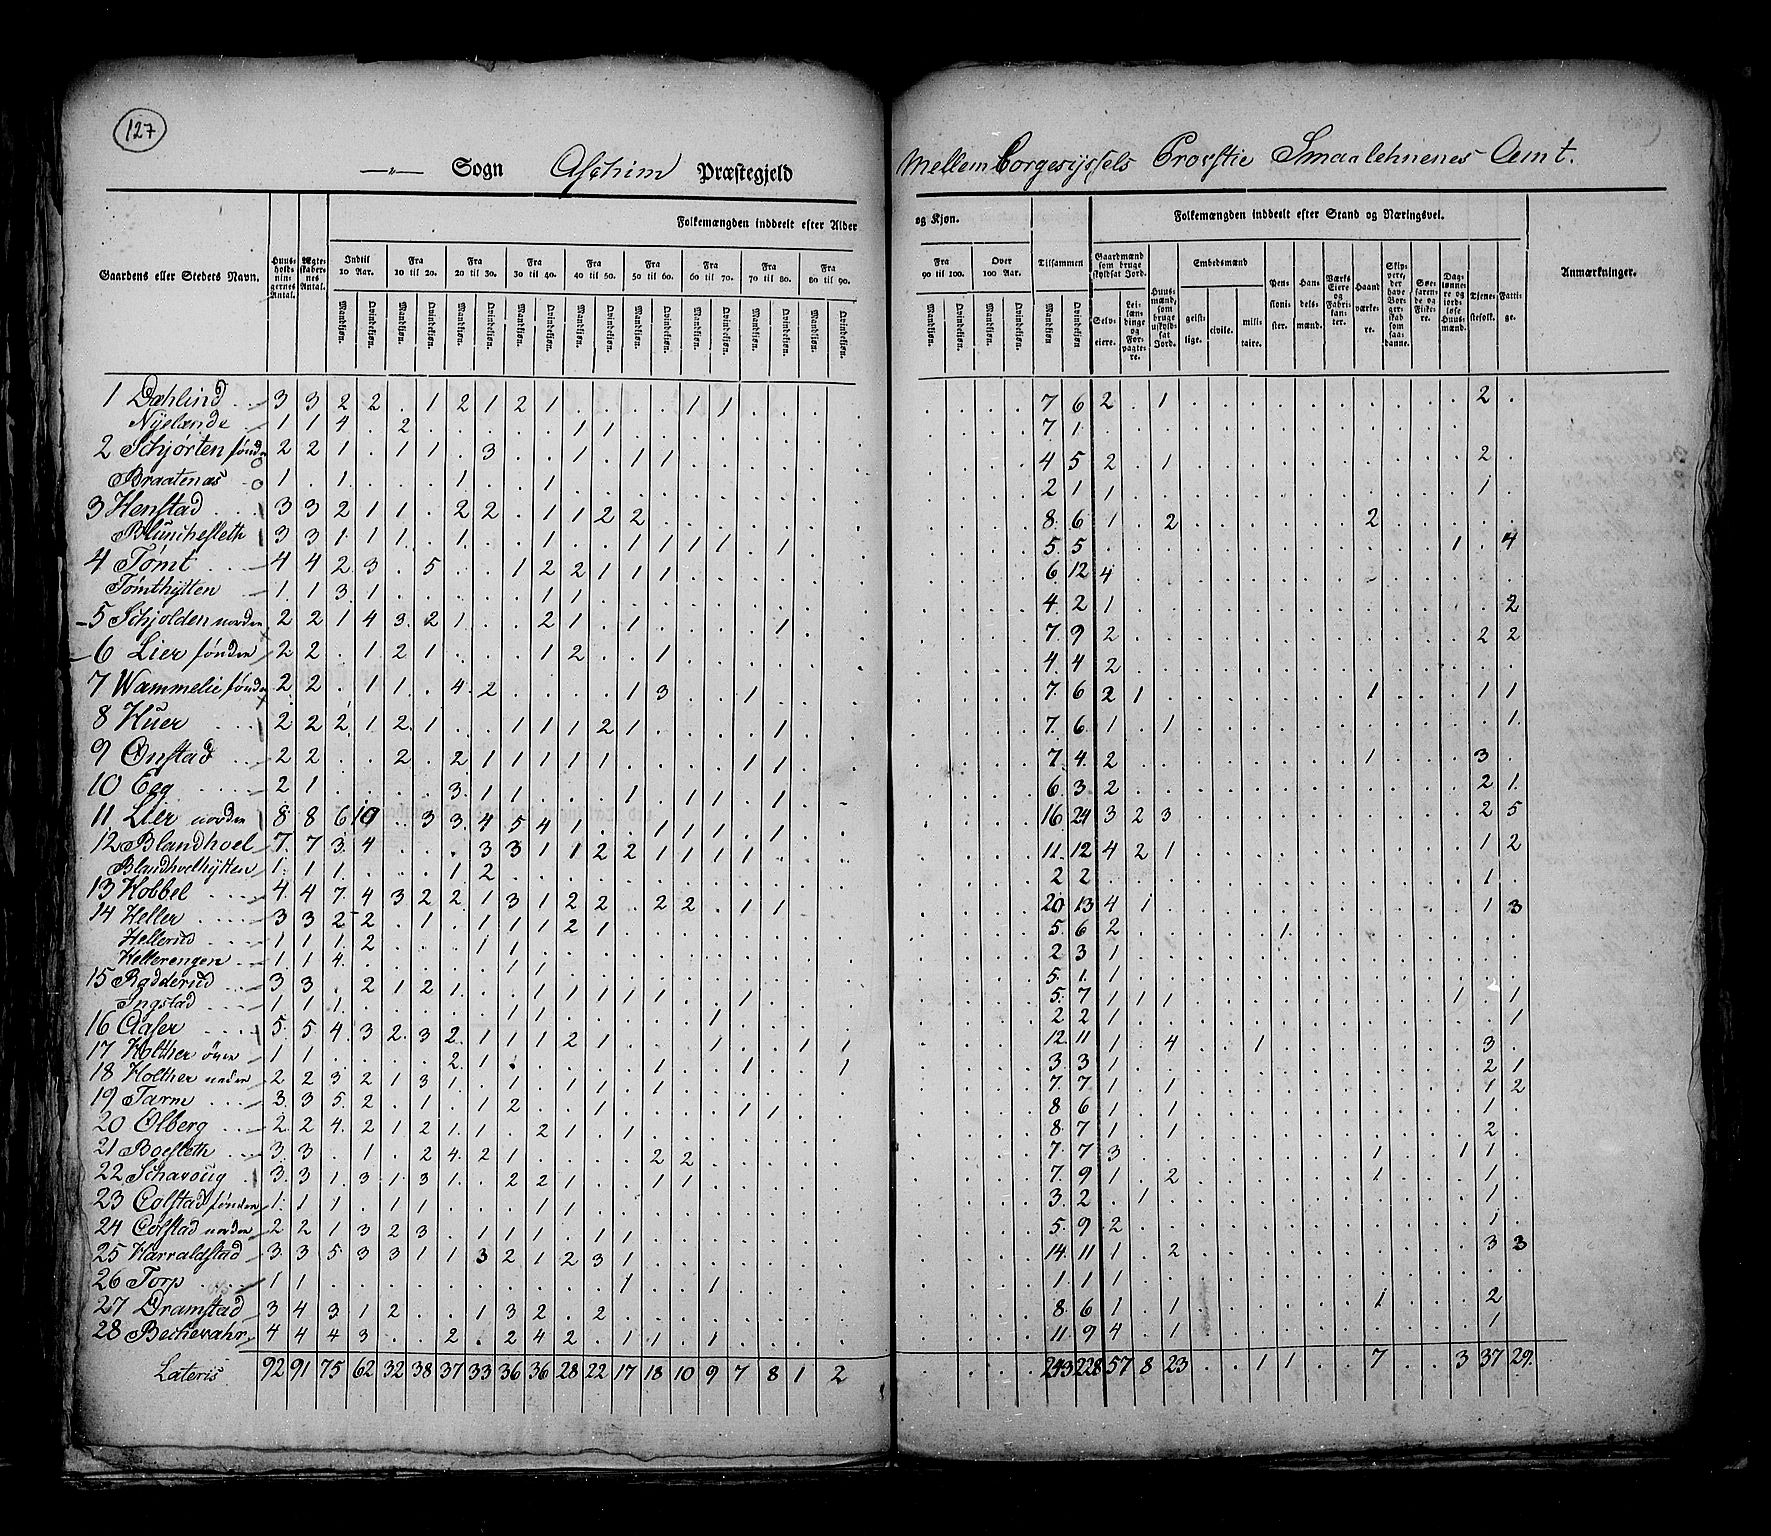 127
—„— Sogn Aschim Præstegjeld
Mellem Borgesyssels Provstie Smaalehnenes Amt.
Folkemængden inddeelt efter Alder
og Kjøn.
Folkemængden inddeelt efter Stand og Næringsvei.
Gaardens eller Stedets Navn.
Huus-holdningernes Antal.
Ægteskabernes Antal.
Indtil 10 Aar.
Fra 10 til 20.
Fra 20 til 30.
Fra 30 til 40.
Fra 40 til 50.
Fra 50 til 60.
Fra 60 til 70.
Fra 70 til 80.
Fra 80 til 90.
Fra 90 til 100.
Over 100 Aar.
Tilsammen
Mandkjøn. Qvindekjøn.
Gaardmænd som bruge skyldsat Jord.
Selveiere.
Leilændinge og Forpagtere.
Huusmænd, som bruge uskyldsat Jord.
Embedsmænd
geistlige. civile. militaire.
Pensionister.
Handelsmænd.
Værks Eiere og Fabrikanter.
Haandværkere.
Skippere, der have Borgerskab som saadanne.
Søefarende og Fiskere.
Daglønnere og jordløse Huusmænd.
Tjenestefolk.
Fattige.
Anmærkninger.
1 Dæhlind 3 3 2 2 . 1 2 1 2 1 . . . . 1 1 7 6 2 . 1 2
Nyelænde 1 1 4 . 2 . . . . . 1 1 7 1
2 Schjørten sønden 2 2 1 . 1 1 . 3 . . 1 . 1 1 4 5 2 . 1 2
Braatenæs 1 . 1 . . . 1 . . 1 2 1 1 1
3 Henstad 3 3 2 1 1 . 2 2 . 1 1 2 2 8 6 1 . 2 2
3 3 1 1 1 . 1 . . 1 . . 1 1 1 1 . 1 5 5 1 . 4
4 Tømt 4 4 2 3 . 5 . . 1 2 2 1 1 1 6 12 4
Tømthytten 1 1 3 1 . . . . . 1 1 4 2 1 2
5 Schjolden norden 2 2 1 4 3 2 1 . . 2 1 . 1 . . . . 1 7 9 2 2 2
6 Lier sønden 2 2 . 1 2 1 . . . 1 2 . . 1 4 4 2
7 Wammelie sønden 2 2 . 1 1 . 4 2 . . . . 1 3 . . 1 7 6 2 1 1 1 1
8 Huer 2 2 2 1 2 1 . . 1 1 1 2 1 . . . . 1 7 6 1 . 1 1
9 Onstad 2 2 . . 2 . 2 1 1 1 1 1 . . . . 1 1 7 4 2 1 3
10 Eeg 2 1 . . . . 3 1 1 . . . 1 . 1 1 . 1 6 3 2 2 1
11 Lier norden 8 8 6 10 . 3 3 4 5 4 1 . . 1 1 1 16 24 3 2 3 2 5
12 Blandhoel 7 7 3 4 . . . 3 3 1 1 2 2 1 1 1 1 11 12 4 2 1 1 2
Blandhoelhytten 1 1 1 . . . 1 2 2 2 1
13 Hobbel 4 4 7 4 3 2 2 1 3 1 2 2 . 2 2 . 1 1 20 13 4 1 1 3
14 Heller 3 3 2 2 . 1 . 1 1 1 2 1 5 6 2 1
Hellerud 1 1 1 2 . . . 1 1 2 3 1
Hellerengen 1 1 4 . . . . . 1 1 5 1 1
15 Rødderud 3 3 . 2 1 2 1 . . 1 1 1 1 1 . . 1 5 7 1 1 1 1 . 1
Ingstad 1 1 1 . . . . . 1 1 . . . . . 1 2 2 1 1
16 Agser 5 5 4 3 2 3 2 1 1 1 2 1 . . . 1 . . 1 1 12 11 1 . 4 1 3
17 Holther øvre 1 1 . . . . 2 1 . . . . . 1 . . 1 . . 1 3 3 1 2 1
18 Holther neden 2 2 3 2 1 3 1 . 1 . 1 1 . 1 7 7 1 . 1 1 2
19 Tarm 3 3 5 2 . 1 . 1 2 . . 1 . . . . 1 1 8 6 1 . 1 1
20 Olberg 2 2 4 2 1 2 1 1 . 2 1 . 1 8 7 1 . 1 2
21 Boesleth 3 3 . 1 . 2 4 2 1 . . . . 2 2 7 7 3 1 1 1
22 3 3 1 3 1 3 1 . 2 2 1 . . 1 1 7 9 1 . 2 1 1
23 Colstad sønden 1 1 1 . 1 1 . . . 1 1 3 2 . 1 1
24 Colstad norden 2 2 1 3 2 3 . 1 1 1 . 1 1 5 9 2 1
25 Harraldstad 3 3 5 3 3 1 1 3 2 1 2 3 1 14 11 1 . 2 3 3
26 Torp 1 1 . . . . . . . . . . 1 . . 1 1 1 1
27 Dramstad 3 4 3 1 2 . . 1 3 2 . 2 8 6 1 . 1 1 2
28 Bechevahr 4 4 4 3 . . 2 . 2 4 2 . 1 1 . 1 11 9 4 . 1 1
Lateris 92 91 75 62 32 38 37 33 36 36 28 22 17 18 10 9 7 8 1 2 . . . . 243 228 57 8 23 . . 1 1 . . 7 . . 3 37 29.